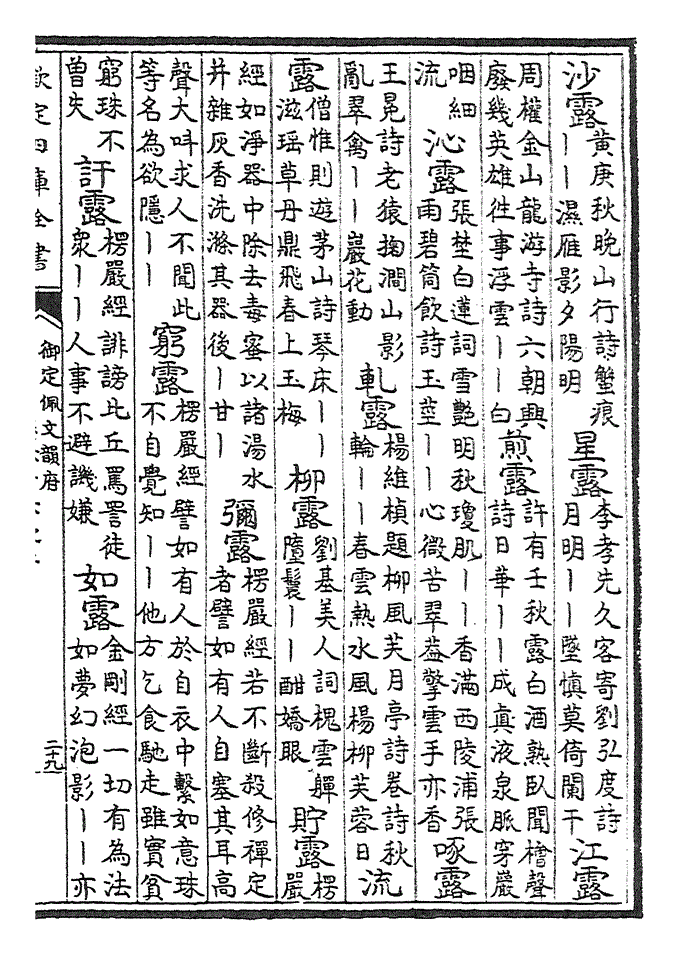 沙露黃庚秋晚山行詩蟹痕丨丨濕雁影夕陽明星露李孝先久客寄劉弘度詩月明丨丨墜慎莫倚闌干江露
周權金山龍游寺詩六朝興廢幾英雄徃事浮雲丨丨白煎露許有壬秋露白酒熟臥聞槽聲詩日華丨丨成真液泉脈穿巖
咽細流沁露張埜白蓮詞雪艷明秋瓊肌丨丨香滿西陵浦張雨碧筒飲詩玉莖丨丨心微苦翠葢擎雲手亦香啄露
王冕詩老猿掬澗山影亂翠禽丨丨巖花動軋露楊維楨題柳風芙月亭詩卷詩秋輪丨丨春雲熱水風楊柳芙蓉日流
露僧惟則遊茅山詩琴床丨丨滋瑶草丹鼎飛春上玉梅柳露劉基美人詞槐雲軃墮鬟丨丨酣嬌眼貯露楞嚴
經如淨器中除去毒蜜以諸湯水井雜灰香洗滌其器後丨甘丨彌露楞嚴經若不斷殺修禪定者譬如有人自塞其耳高
聲大呌求人不聞此等名為欲隱丨丨窮露楞嚴經譬如有人於自衣中繫如意珠不自覺知丨丨他方乞食馳走雖實貧
窮珠不曾失訐露楞嚴經誹謗比丘罵詈徒衆丨丨人事不避譏嫌如露金剛經一切有為法如夢幻泡影丨丨亦
欽定四庫全書
御定佩文韻府
二十九